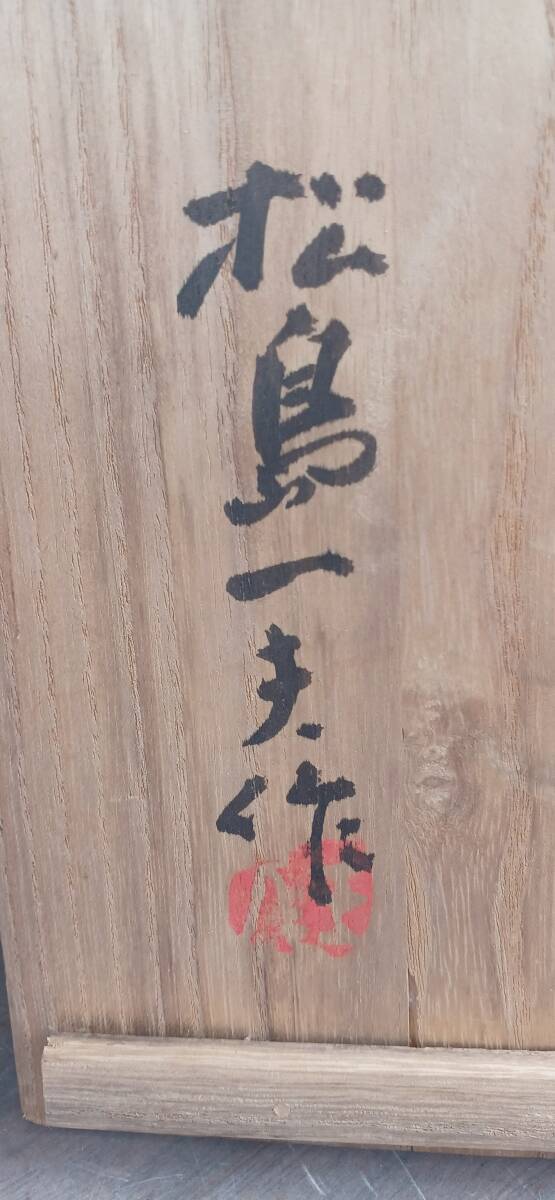 松島一夫作